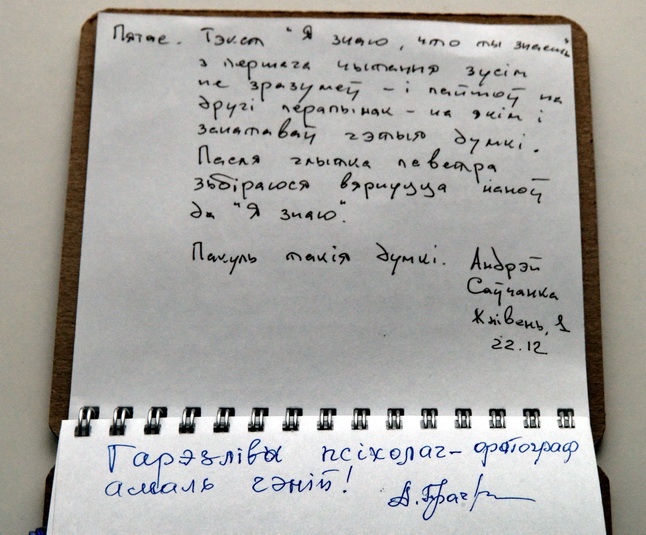 Пятае. Тэкст "Я знаю, что ты знаешь"
з першага чытання зусім
не зразумеў - і пайшоў на
другі перапынак - на якім і
занатаваў гэтыя думкі.
Пасля глытка паветра
збіраюся вярнуцца наноў
да "Я знаю".
Пакуль такія думкі.
Андрэй
Саўчанка
Жнівень, 1
22.12
Гарэзлівы псіхолаг-фотограф
амаль геній!